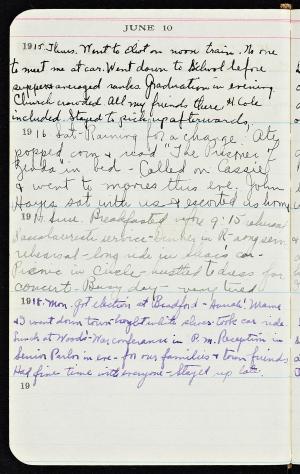 JUNE 10
1915 Thurs. Went to Eliot on noon train. No one
to meet me at car. Went down to School before
supper & arranged ranks. Graduation in evening
Church crowded All my friends there H. Cole
included. Stayed to pick up afterwards.
1916 Sat. Raining for a change. Ate
popped corn & read "The Prisoner of
Zenda" in bed - Called on Cassie
& went to movies this eve. John
Hayes sat with us & escorted us home
19 Sun. Breakfasted 9'15 rehearsal
Baccalaureate service - in R -
rehearsal - long ride in car -
Picnic in Circle - hustled to dress for
concert. Busy day - very tired
1918. Mon. Got election at Bradford - Hurrah! Mame
& I went down town - bought white shoes - took car ride.
Lunch at Woods' - War conference in P.M. Reception in
Senior Parlor in eve - for our families & town friends
Had fine time with everyone - Stayed up late.
19